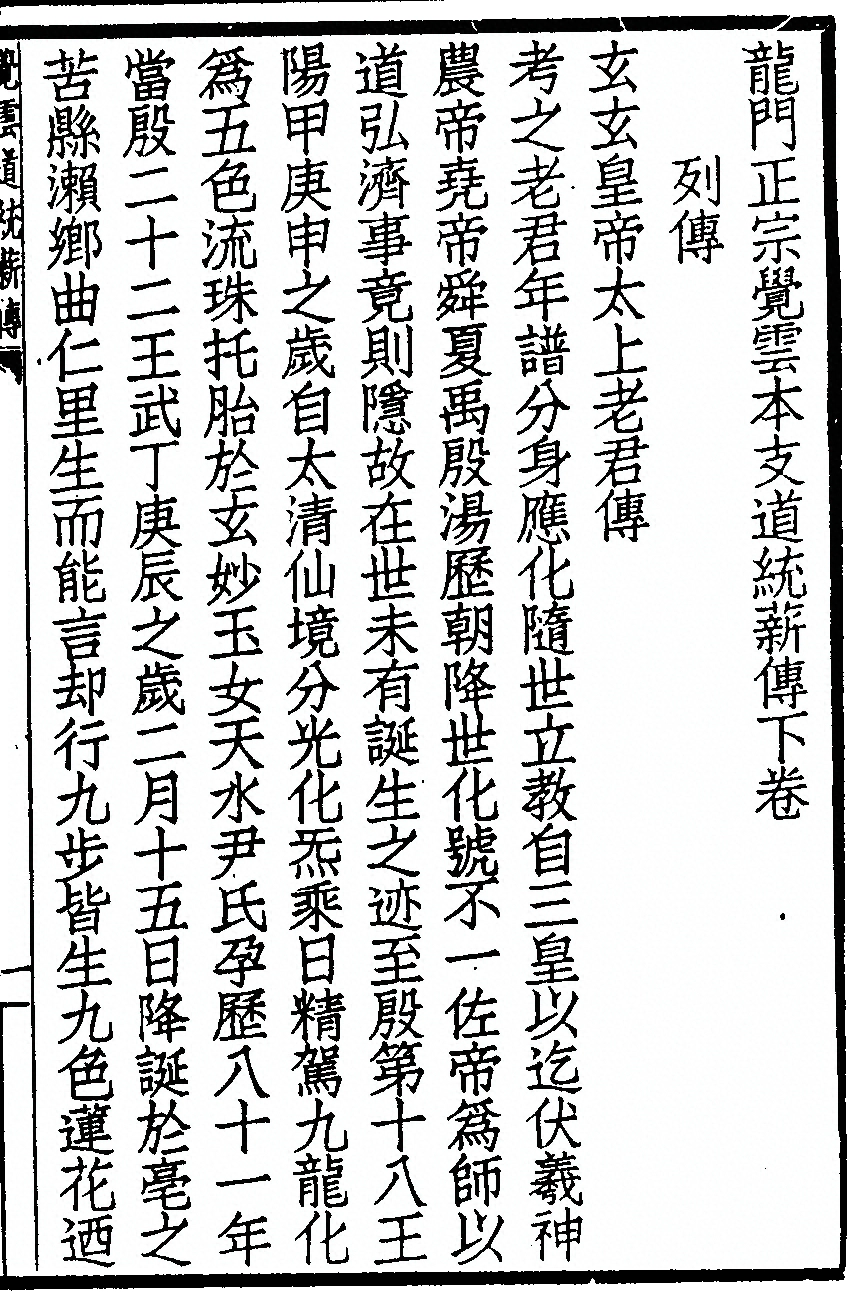 龍門正宗覺雲本支道統薪傳下卷
列傳
玄玄皇帝太上老君傳
考之老君年譜分身應化隨世立教自三皇以迄伏羲神
農帝堯帝舜夏禹殷湯歷朝降世化號不一佐帝爲師以
道弘濟事竟則隱故在世未有誕生之迹至殷第十八王
陽甲庚申之歲自太清仙境分光化炁乘日精駕九龍化
爲五色流珠托胎於玄妙玉女天水尹氏孕歷八十一年
當殷二十二王武丁庚辰之歲二月十五日降誕於亳之
苦縣瀨鄉曲仁里生而能言却行九步皆生九色蓮花迺
覺雲道統薪傳
一